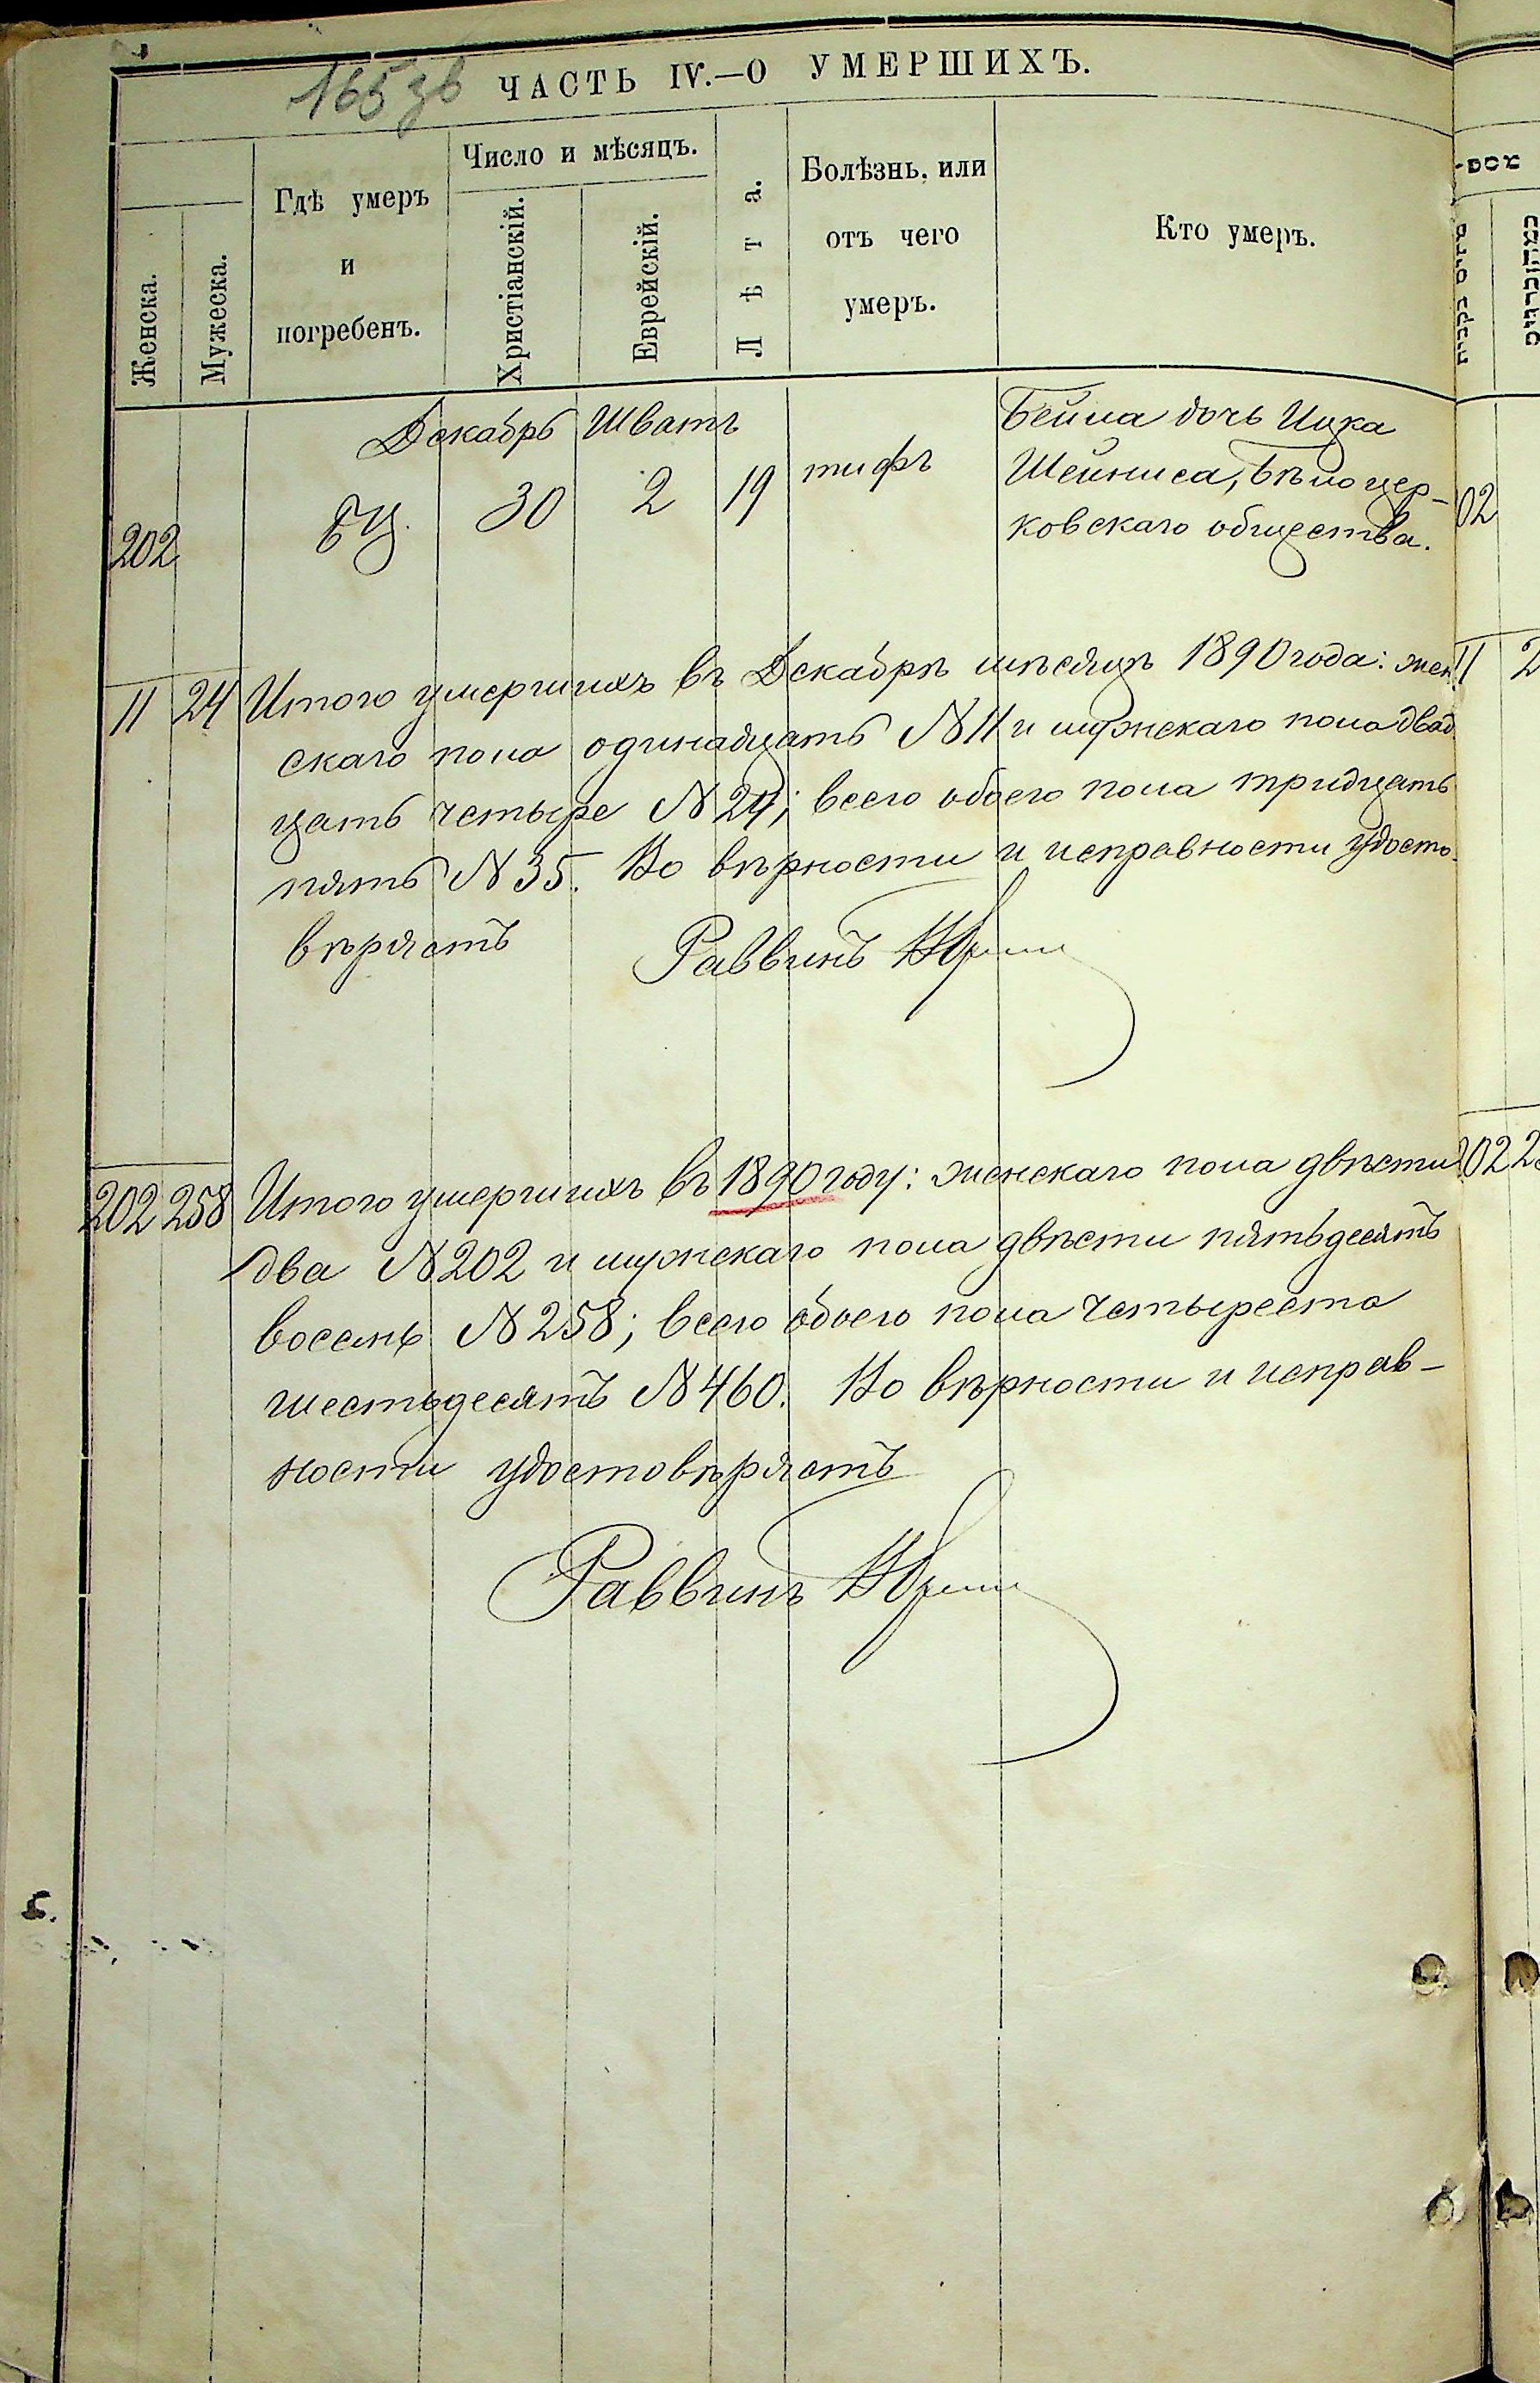 165 зв
ЧАСТЬ IV.—О УМЕРШИХЪ.
Женска.
Мужеска.
Гдѣ умеръ
и
погребенъ.
Число и мѣсяцъ.
Христіанскій.
Еврейскій.
Лѣта.
Болѣзнь, или
отъ чего
умеръ.
Кто умеръ.
Декабрь Шватъ
202 БЦ. 30 2 19 тифъ
Бейла дочь Ицка
Шейниса, Бѣлоцер-
ковскаго общества.
11 24 Итого умершихъ въ Декабрѣ мѣсяцѣ 1890 года: жен
скаго пола одинадцать N 11 и мужскаго пола двад
цать четыре N 24; всего обоего пола тридцать
пять N 35. Во вѣрности и исправности удосто-
вѣряетъ Раввинъ
202 258 Итого умершихъ въ 1890 году: женскаго пола двѣсти
два N 202 и мужскаго пола двѣсти пятьдесятъ
восемь N 258; всего обоего пола четыреста
шестьдесятъ N 460. Во вѣрности и исправ-
ности удостовѣряетъ
Раввинъ
02
11 2
202 25